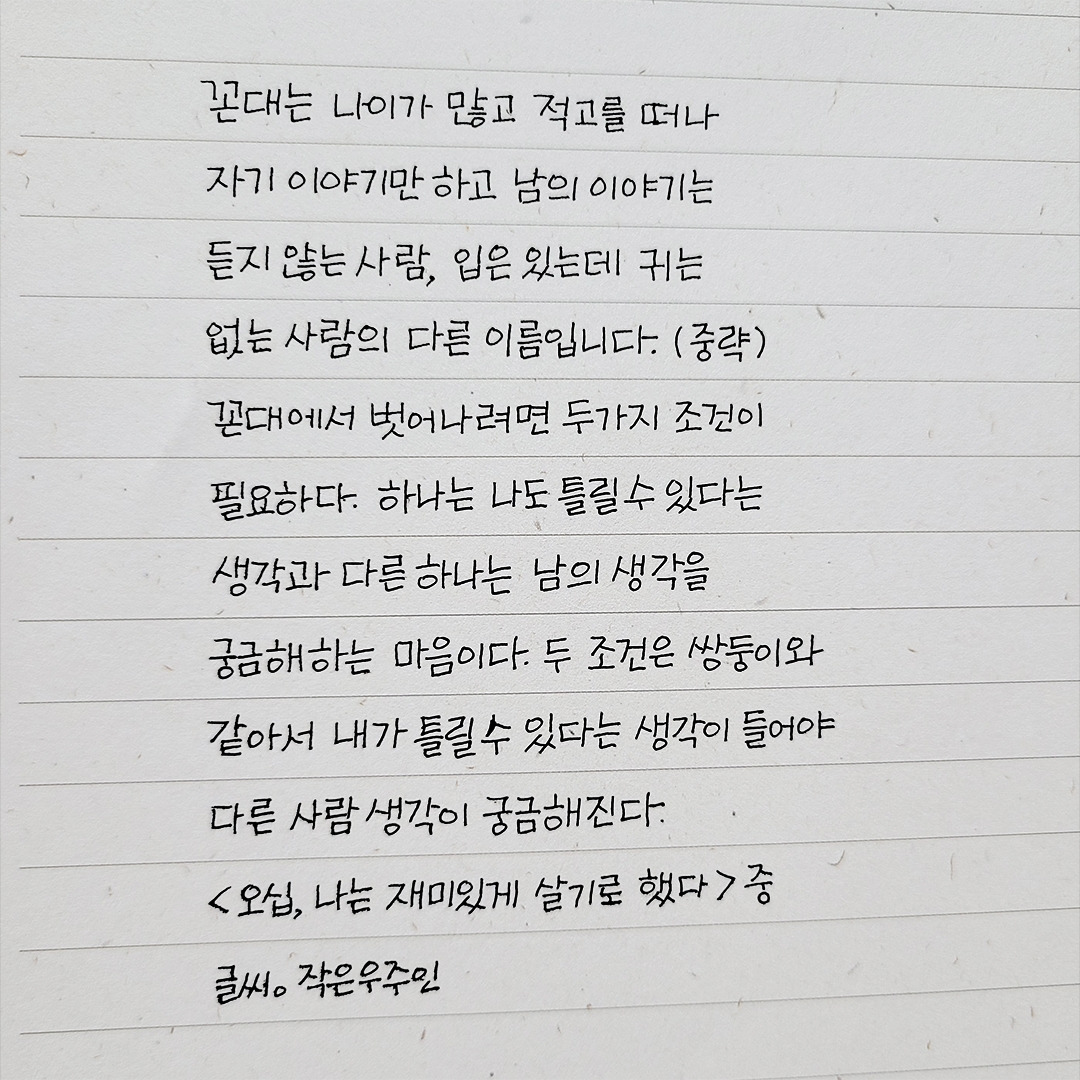 꼰대는 나이가 많고 적고를 떠나
자기 이야기만 하고 남의 이야기는
듣지 않는 사람, 입은 있는데 귀는
없는 사람의 다른 이름입니다. (중략)
꼰대에서 벗어나려면 두가지 조건이
필요하다. 하나는 나도 틀릴 수 있다는
생각과 다른 하나는 남의 생각을
궁금해하는 마음이다. 두 조건은 쌍둥이와
같아서 내가 틀릴 수 있다는 생각이 들어야
다른 사람 생각이 궁금해진다.
<오십, 나는 재미있게 살기로 했다> 중
글씨。작은우주인